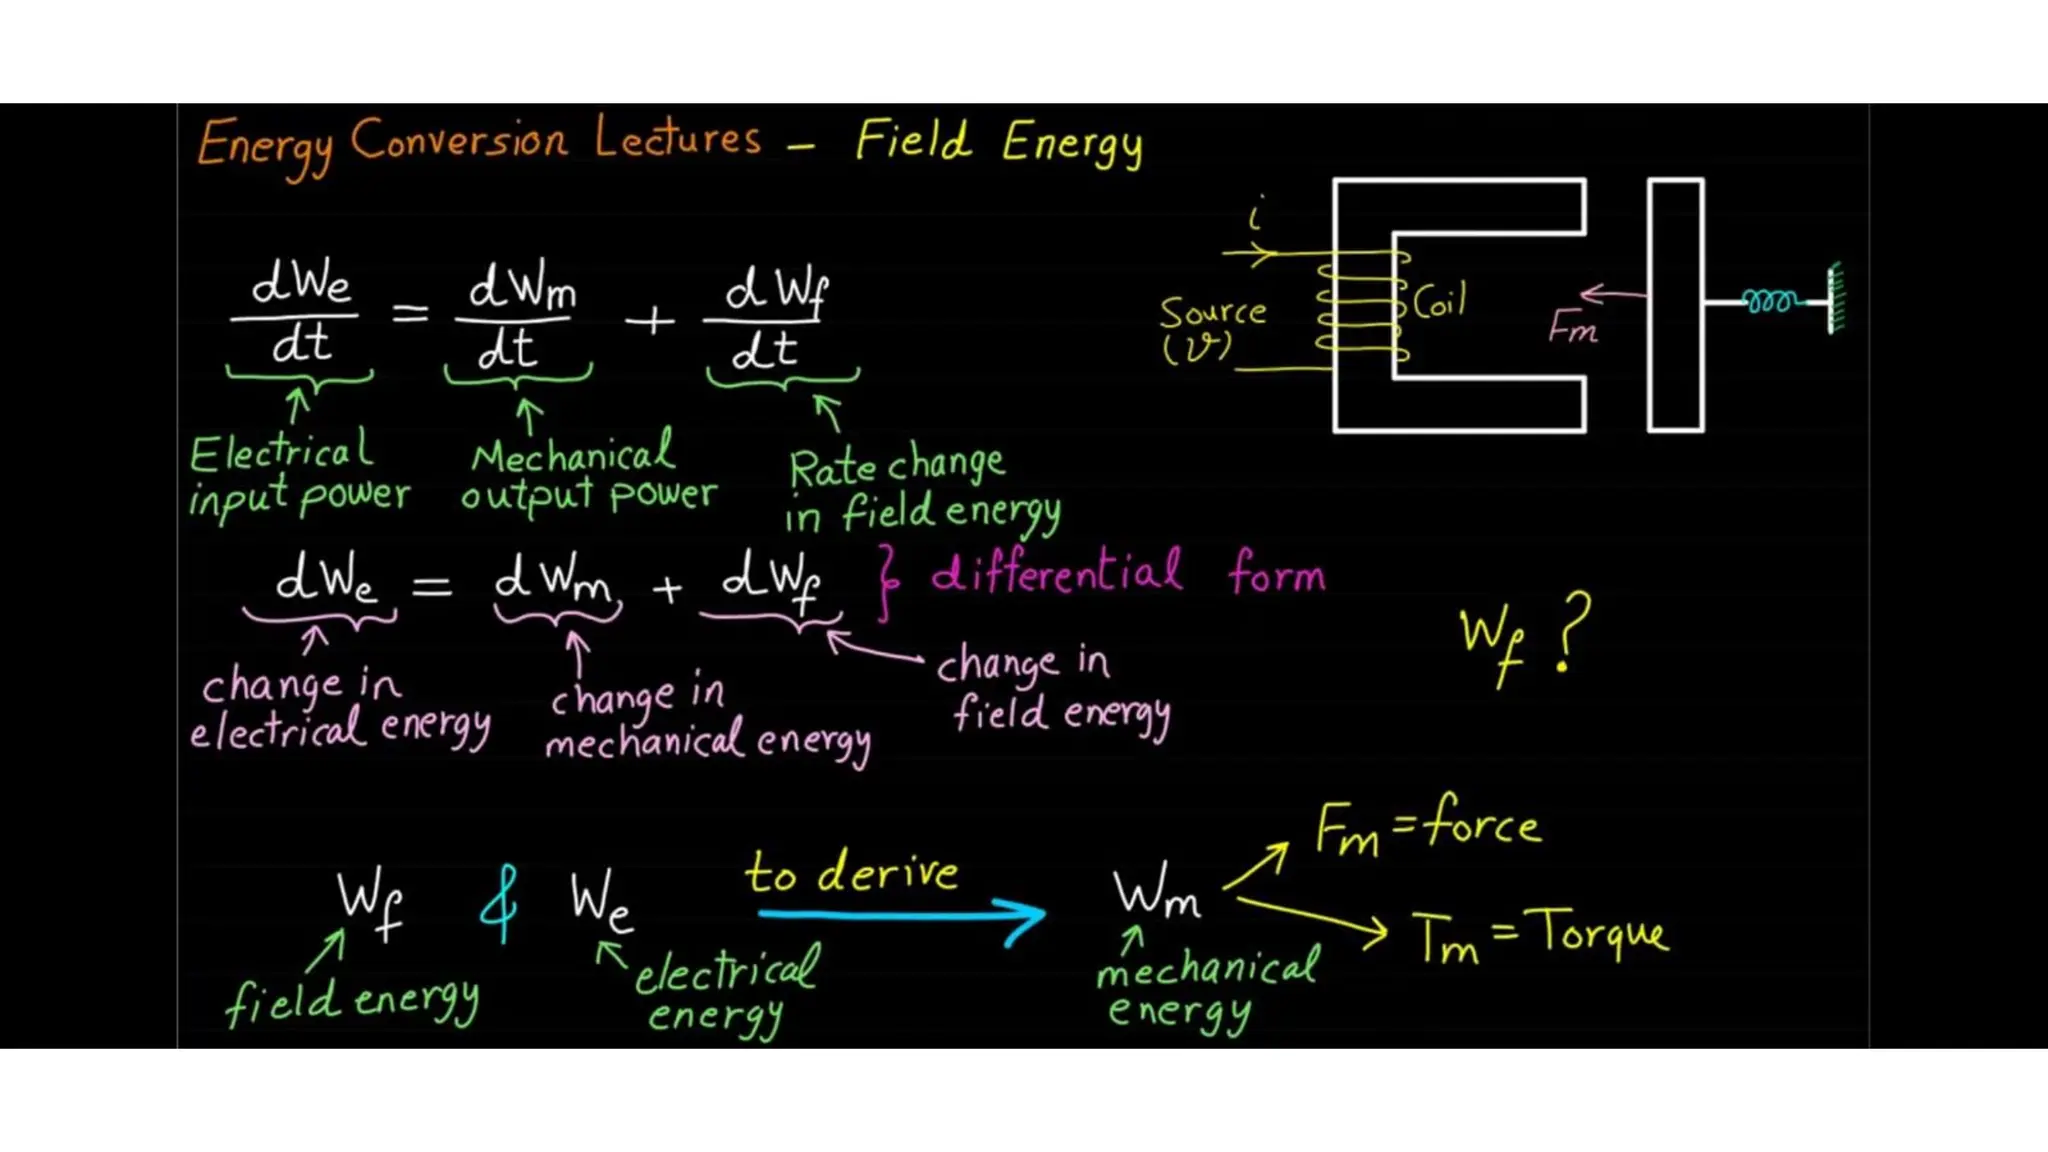 Energy Conversion Lectures – Field Energy
i
Source
(v)
Coil
Fm
dWe/dt = dWm/dt + dWf/dt
Electrical
input power
Mechanical
output power
Rate change
in field energy
dWe = dWm + dWf } differential form
change in
electrical energy
change in
mechanical energy
change in
field energy
Wf ?
Wf & We to derive Wm
Fm = force
Tm = Torque
field energy
electrical
energy
mechanical
energy